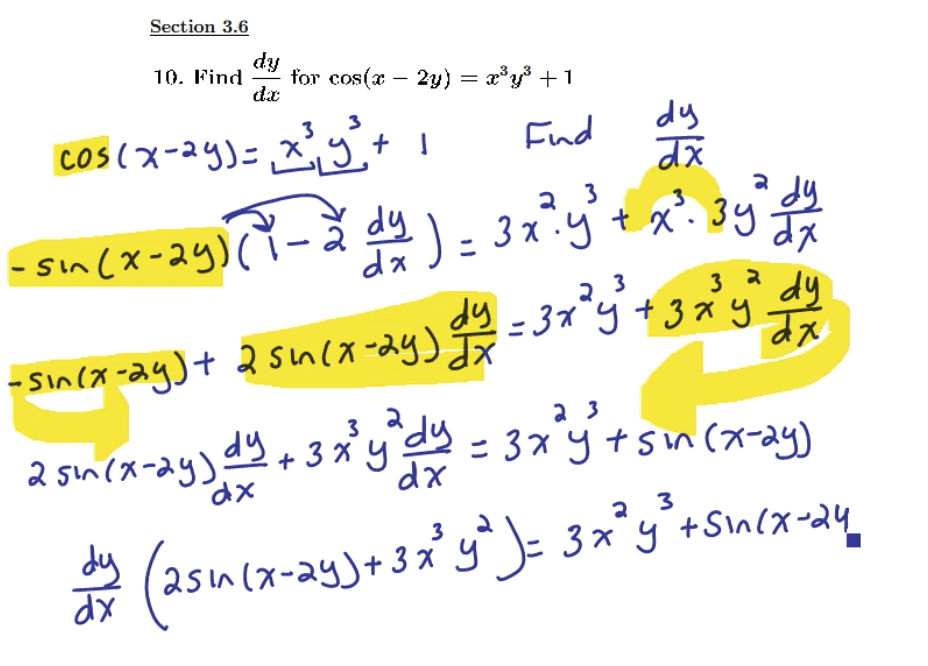 Section 3.6
10. Find dy/dx for cos(x − 2y) = x³y³ + 1
cos(x-2y)= x³y³+ 1 Find dy/dx
-sin(x-2y)(1-2 dy/dx) = 3x²·y³ + x³·3y² dy/dx
-sin(x-2y)+ 2sin(x-2y) dy/dx = 3x²y³ + 3x³y² dy/dx
2sin(x-2y) dy/dx + 3x³y² dy/dx = 3x²y³ + sin(x-2y)
dy/dx (2sin(x-2y)+3x³y²)= 3x²y³ +sin(x-2y